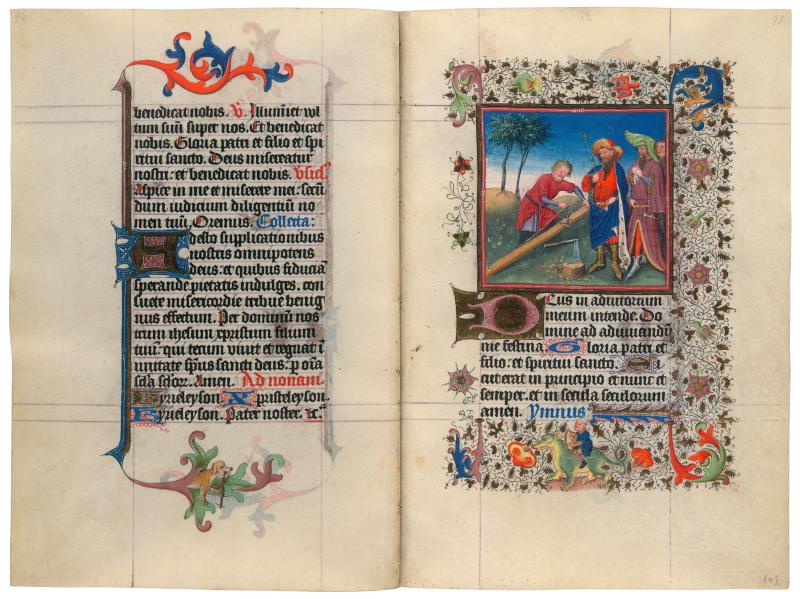 94
benedicat nobis. V. Illumiet vl
tum suũ super nos. Et benedicat
nobis. Gloria patri et filio et spi
ritui sancto. Deus misereatur
nostri: et benedicat nobis. Vsicl̃
Aspice in me et miserere mei: secũ
dum iudicium diligentiũ no
men tuũ. Oremus. Collecta:
Adesto supplicationibus
nostris omnipotens
deus: et quibus fiduciã
sperande pietatis indulges, con
suete misericordie tribue benig
nus effectum. Per dominũ nos
trum ihesum xpristum filium
tuũ: qui tecum vivit et regnat ĩ
unitate spũs sancti deus: p oĩa
scła scłor. Amen. Ad nonam.
Kyrieleyson. Xpristeleyson.
Kyrieleyson. Pater noster. ⁊c.
95
Deus in adiutorium
meum intende. Do
mine ad adiuvandũ
me festina. Gloria patri et
filio: et spiritui sancto. Si
cut erat in principio et nunc et
semper: et in secula seculorum
amen. Ymnus